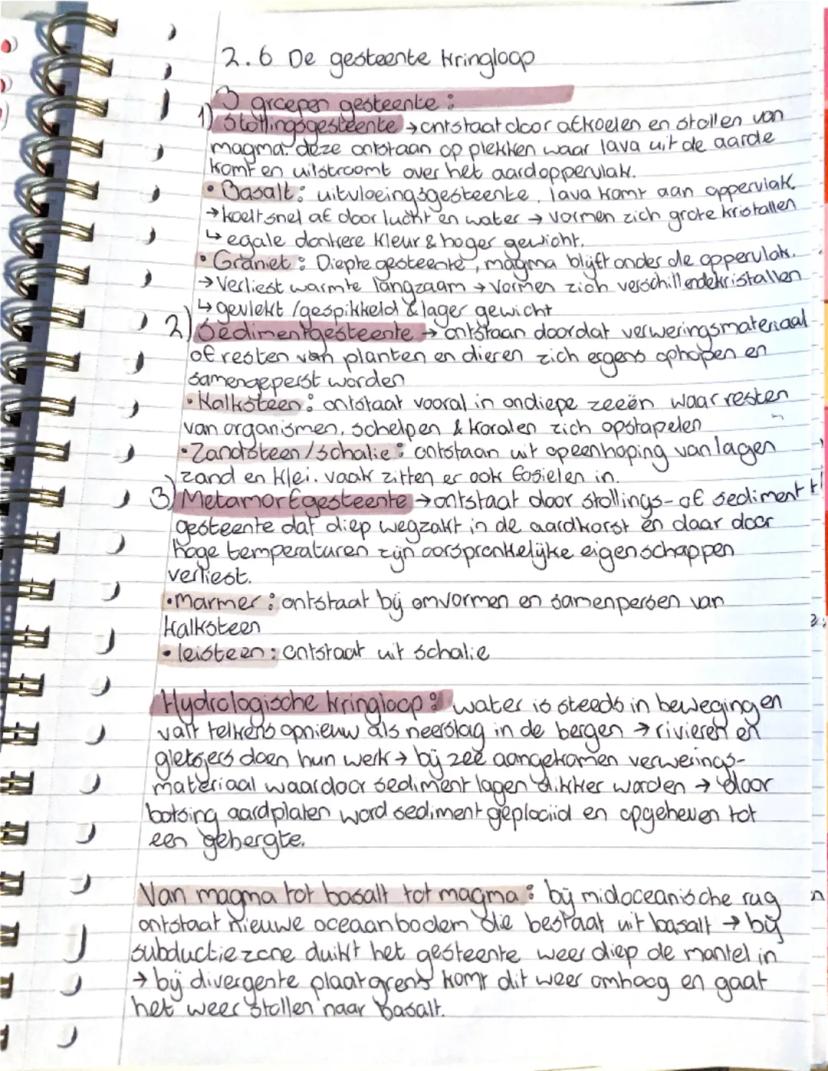 2.6 De gesteente kringloop
3 groepen gesteente:
1) Stollingsgesteente → ontstaat door afkoelen en stollen van
magma. deze ontstaan op plekken waar lava uit de aarde
komt en uitstroomt over het aardoppervlak.
• Basalt: uitvloeingsgesteente, lava komt aan oppervlak
→ koelt snel af door lucht en water → vormen zich grote kristallen
↳ egale donkere kleur & hoger gewicht.
• Graniet: Diepte gesteente, magma blijft onder de oppervlak.
→ Verliest warmte langzaam → vormen zich verschillende kristallen
↳ gevlekt/gespikkeld & lager gewicht
2) Sedimentgesteente → ontstaan doordat verweringsmateriaal
of resten van planten en dieren zich ergens ophopen en
samengeperst worden
• Kalksteen: ontstaat vooral in ondiepe zeeën waar resten
van organismen, schelpen & koralen zich opstapelen
• Zandsteen/schalie: ontstaan uit opeenhoping van lagen
zand en klei. vaak zitten er ook fosielen in.
3) Metamorfgesteente → ontstaat door stollings- of sediment
gesteente dat diep wegzakt in de aardkorst en daar door
hoge temperaturen zijn oorspronkelijke eigenschappen
verliest.
• Marmer: ontstaat bij omvormen en samenpersen van
kalksteen
• leisteen: ontstaat uit schalie
Hydrologische kringloop: water is steeds in beweging en
valt telkens opnieuw als neerslag in de bergen → rivieren en
gletsjers doen hun werk → bij zee aangekomen verwerings-
materiaal waardoor sediment lagen dikker worden → door
botsing aardplaten word sediment geplooiid en opgeheven tot
een gebergte.
Van magma tot basalt tot magma: bij midoceanische rug
ontstaat nieuwe oceaanbodem die bestaat uit basalt → bij
subductiezone duikt het gesteente weer diep de mantel in
→ bij divergente plaatgrens komt dit weer omhoog en gaat
het weer stollen naar basalt.